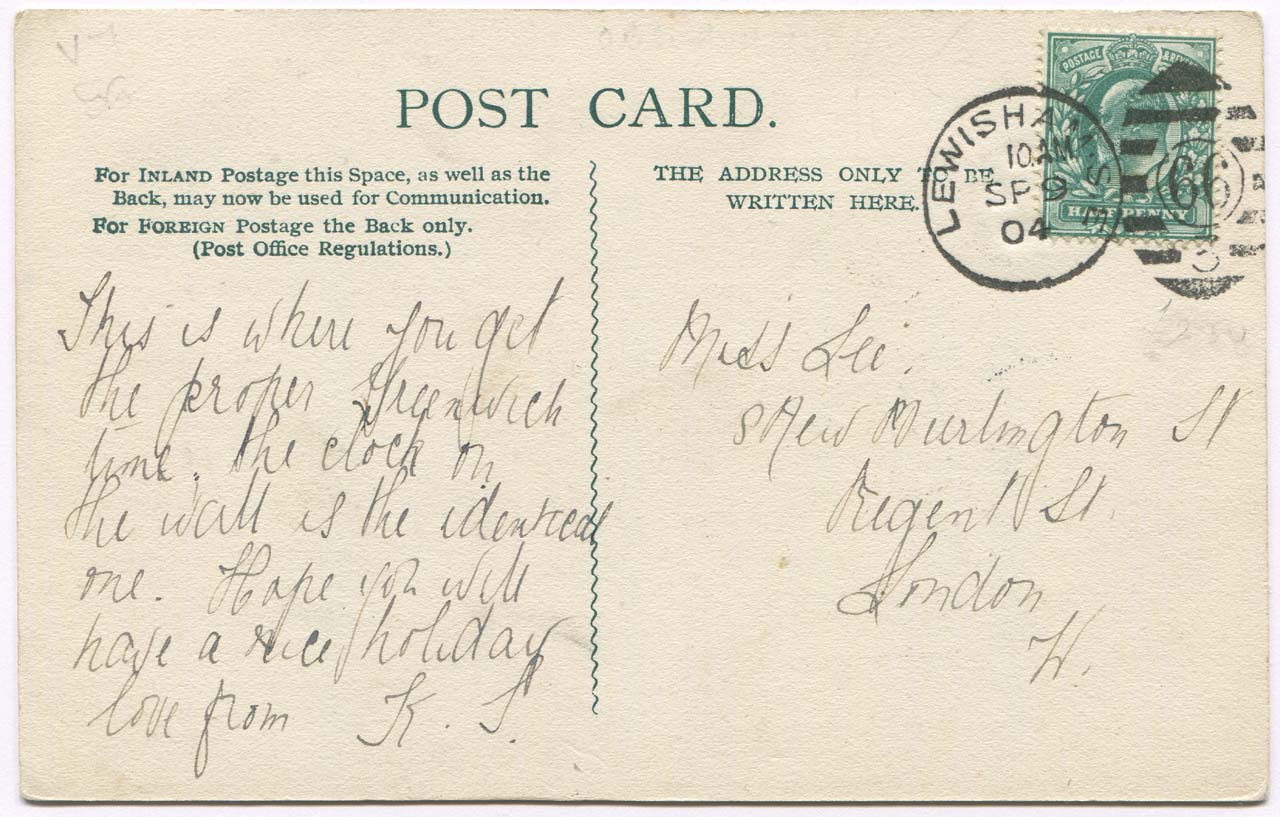 POST CARD.
For INLAND Postage this Space, as well as the
Back, may now be used for Communication.
For FOREIGN Postage the Back only.
(Post Office Regulations.)
THE ADDRESS ONLY TO BE
WRITTEN HERE.
POSTAGE &
HALFPENNY
LEWISHAM S.E
10 AM
SP 9
04
66
3
This is where you get
the proper Greenwich
time. the clock on
the wall is the identical
one. Hope you will
have a nice holiday
love from K. S.
Miss Lee.
8 New Burlington St
Regent St.
London
W.